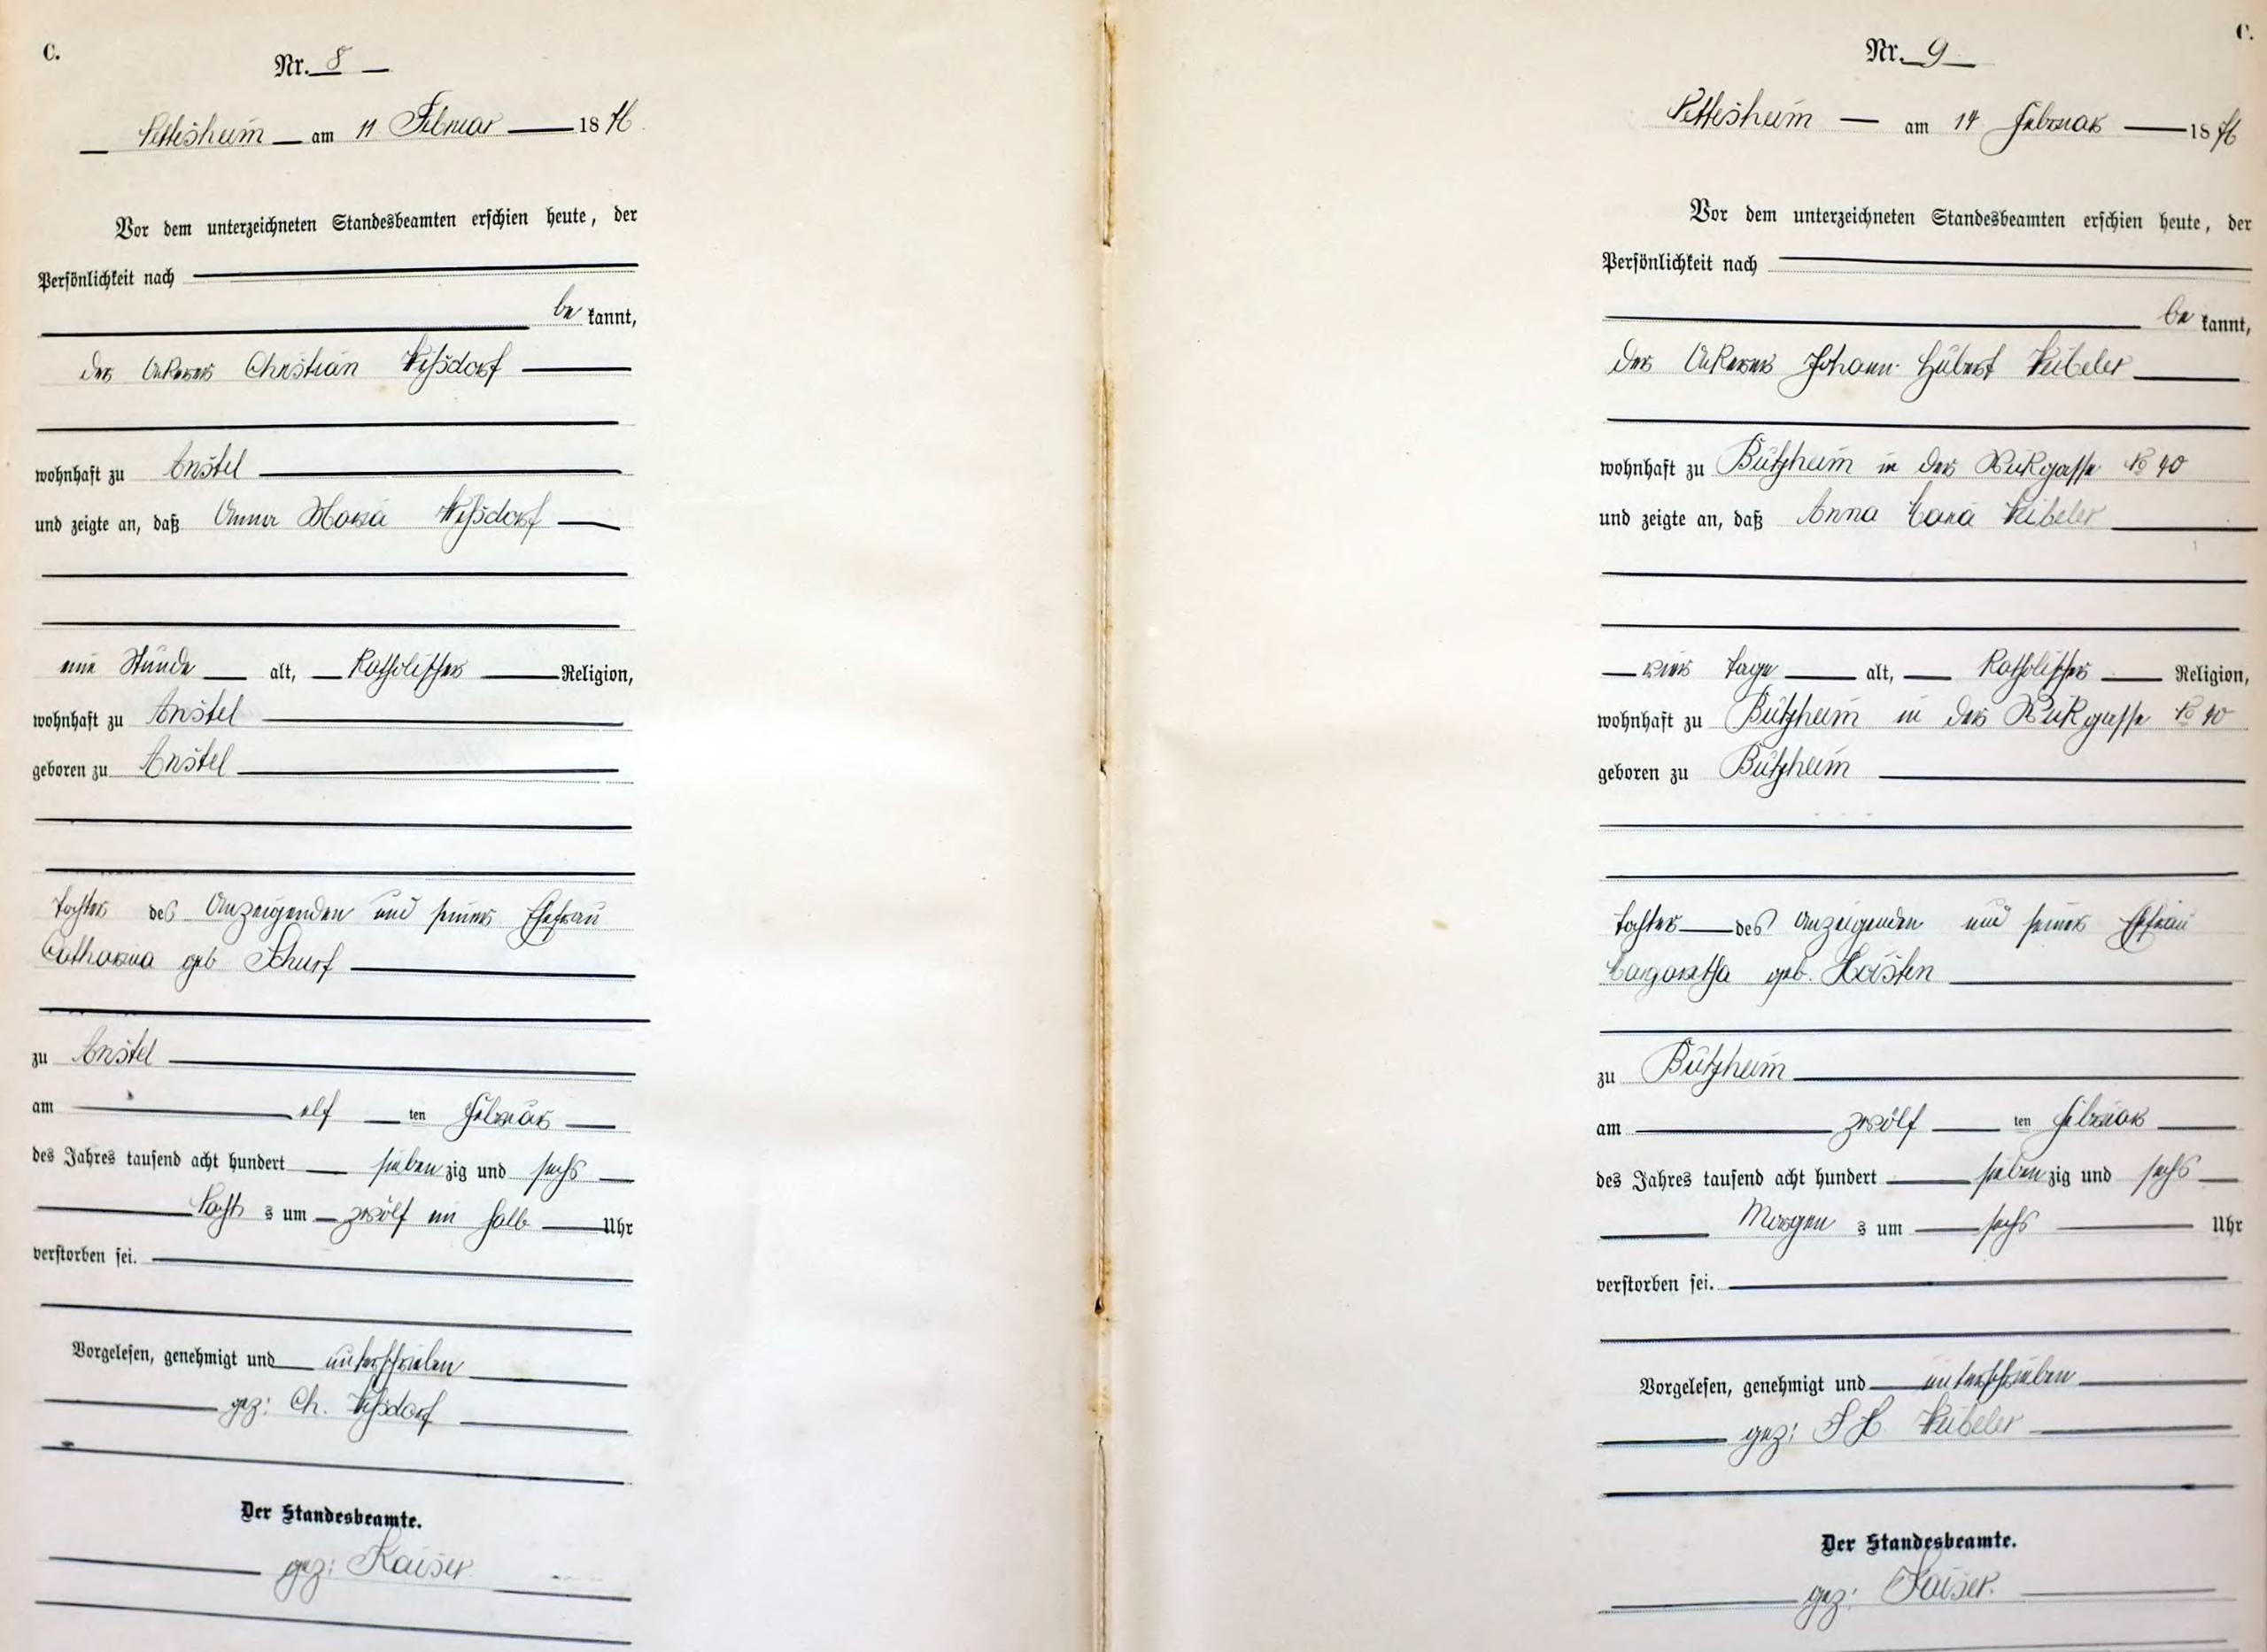 C.
Nr. 8
Nettesheim am 11 Februar 1876.
Vor dem unterzeichneten Standesbeamten erschien heute, der
Persönlichkeit nach
be kannt,
der Ackerer Christian Wißdorf
wohnhaft zu Anstel
und zeigte an, daß Anna Maria Wißdorf
eine Stunde alt, katholischer Religion,
wohnhaft zu Anstel
geboren zu Anstel
Tochter des Anzeigenden und seiner Ehefrau
Catharina geb Schurf
zu Anstel
am elf ten Februar
des Jahres tausend acht hundert sieben zig und sechs
Nacht s um zwölf ein halb Uhr
verstorben sei.
Vorgelesen, genehmigt und unterschrieben
gez: Ch. Wißdorf
Der Standesbeamte.
gez: Kaiser
C.
Nr. 9
Nettesheim am 14 Februar 1876
Vor dem unterzeichneten Standesbeamten erschien heute, der
Persönlichkeit nach
be kannt,
der Ackerer Johann Hubert Weibeler
wohnhaft zu Bützheim in der No 40
und zeigte an, daß Anna Maria Weibeler
vier Tage alt, katholischer Religion,
wohnhaft zu Bützheim in der No 40
geboren zu Bützheim
Tochter des Anzeigenden und seiner Ehefrau
Margaretha geb. Hoisten
zu Bützheim
am zwölf ten Februar
des Jahres tausend acht hundert sieben zig und sechs
Morgen s um sechs Uhr
verstorben sei.
Vorgelesen, genehmigt und unterschrieben
gez: J H. Weibeler
Der Standesbeamte.
gez: Kaiser.